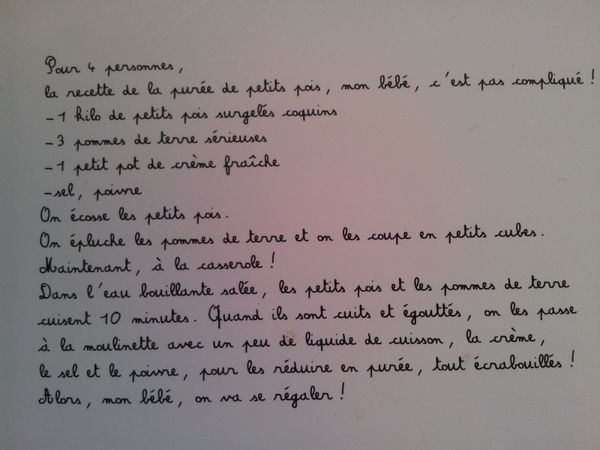 Pour 4 personnes,
la recette de la purée de petits pois, mon bébé, c'est pas compliqué !
-1 kilo de petits pois surgelés coquins
-3 pommes de terre sérieuses
-1 petit pot de crème fraîche
-sel, poivre
On écosse les petits pois.
On épluche les pommes de terre et on les coupe en petits cubes.
Maintenant, à la casserole !
Dans l'eau bouillante salée, les petits pois et les pommes de terre
cuisent 10 minutes. Quand ils sont cuits et égouttés, on les passe
à la moulinette avec un peu de liquide de cuisson, la crème,
le sel et le poivre, pour les réduire en purée, tout écrabouillés !
Alors, mon bébé, on va se régaler !